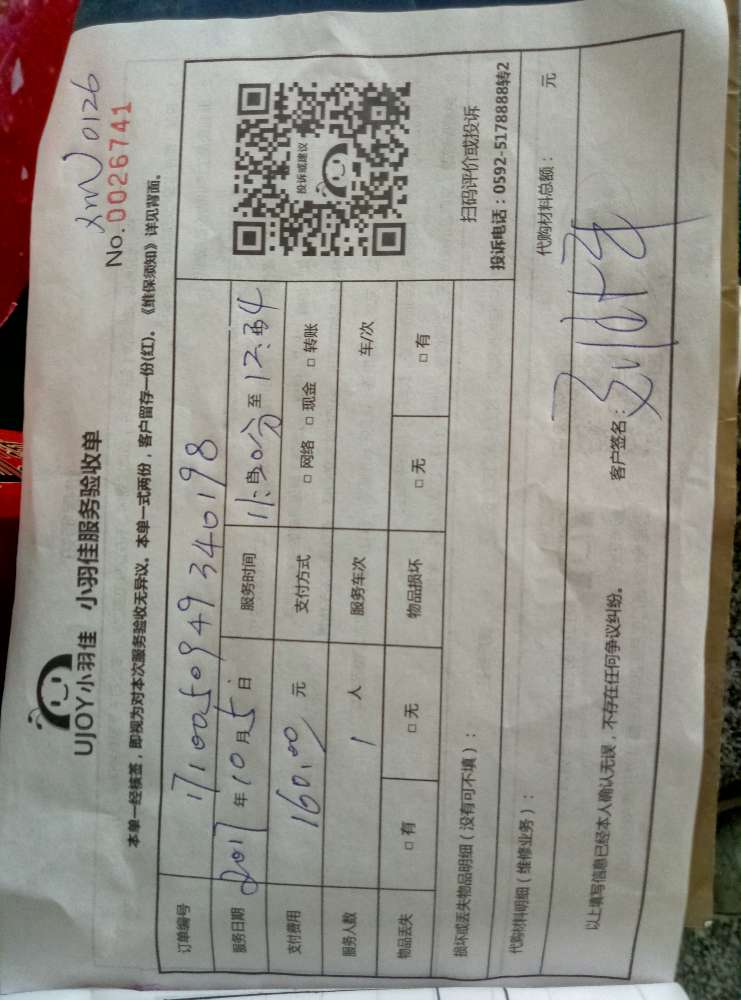 UJOY小羽佳 小羽佳服务验收单
xmN0126
No.0026741
本单一经核签，即视为对本次服务验收无异议。本单一式两份，客户留存一份(红)。《维保须知》详见背面。
订单编号 1710050949340198
服务日期 2017年10月5日 服务时间 自 至 12:34
支付费用 160.00元 支付方式 □ 网络 □ 现金 □ 转账
服务人数 1 人 服务车次 车/次
物品丢失 □ 有 □ 无 物品损坏 □ 无 □ 有
投诉或建议
扫码评价或投诉
投诉电话：0592-5178888转2
损坏或丢失物品明细（没有可不填）：
代购材料明细（维修业务）： 代购材料总额： 元
以上填写信息已经本人确认无误，不存在任何争议纠纷。 客户签名：